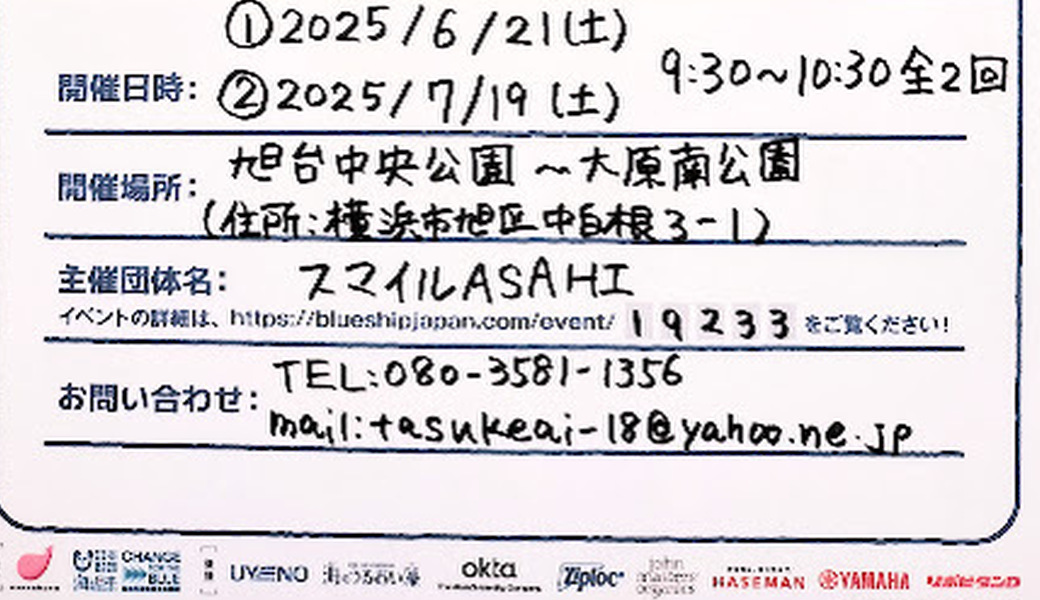 ①2025/6/21(土)
9:30~10:30全2回
開催日時: ②2025/7/19 (土)
旭台中央公園 ~大原南公園
開催場所:
(住所:横浜市旭区中白根3-1)
主催団体名: スマイルASAHI
イベントの詳細は、https://blueshipjapan.com/event/ 19233 をご覧ください!
TEL:080-3581-1356
お問い合わせ:
mail:tasukeai-18@yahoo.ne.jp
CHANGE FOR THE BLUE UYENO 海のうるおい藻 okta Ziploc john masters organics HASEMAN YAMAHA リポビタンD